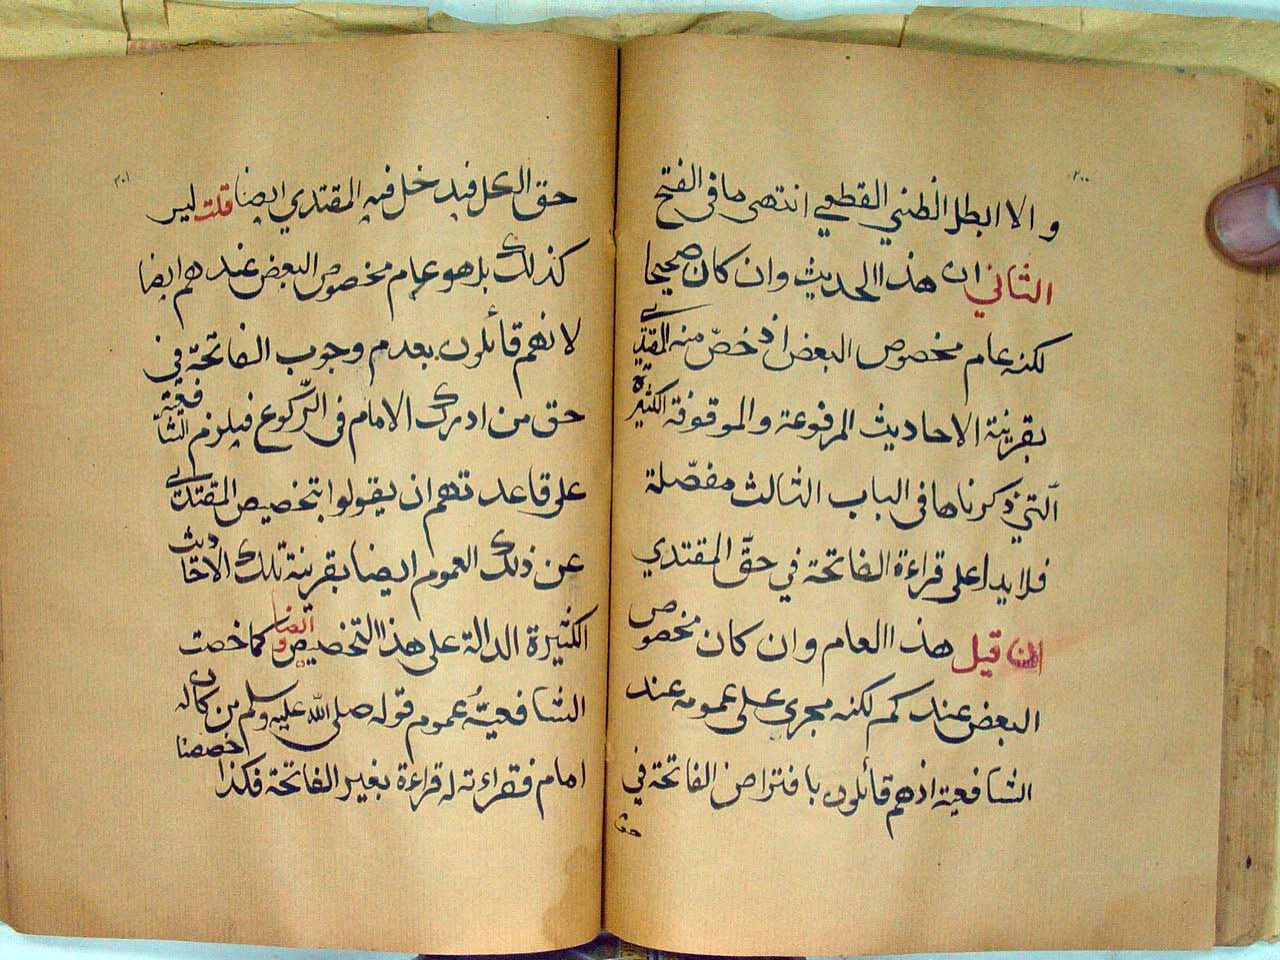 ٢٠٠
والا ابطل الظني القطعي انتهى ما فى الفتح
الثاني ان هذا الحديث وان كان صحيحا
لكنه عام مخصوص البعض اذ خصّ منه المقتدي
بقرينة الاحاديث المرفوعة والموقوفة الكثيرة
التي ذكرناها فى الباب الثالث مفصّلة
فلا يدل على قراءة الفاتحة في حقّ المقتدي
ان قيل هذا العام وان كان مخصوص
البعض عندكم لكنه مجرى على عمومه عند
الشافعية اذ هم قائلون بافتراض الفاتحة في
حق
٢٠١
حق الكل فيدخل فيه المقتدي ايضا قلت ليس
كذلك بل هو عام مخصوص البعض عندهم ايضا
لانهم قائلون بعدم وجوب الفاتحة في
حق من ادرك الامام فى الرّكوع فيلزم الشافعية
على قاعدتهم ان يقولوا بتخصيص المقتدي
عن ذلك العموم ايضا بقرينة تلك الاحاديث
الكثيرة الدالة على هذا التخصيص و ايضا كما خصت
الشافعيّة عموم قوله صلى الله عليه وسلم من كان له
امام فقراءته له قراءة بغير الفاتحة فكذا خصصنا